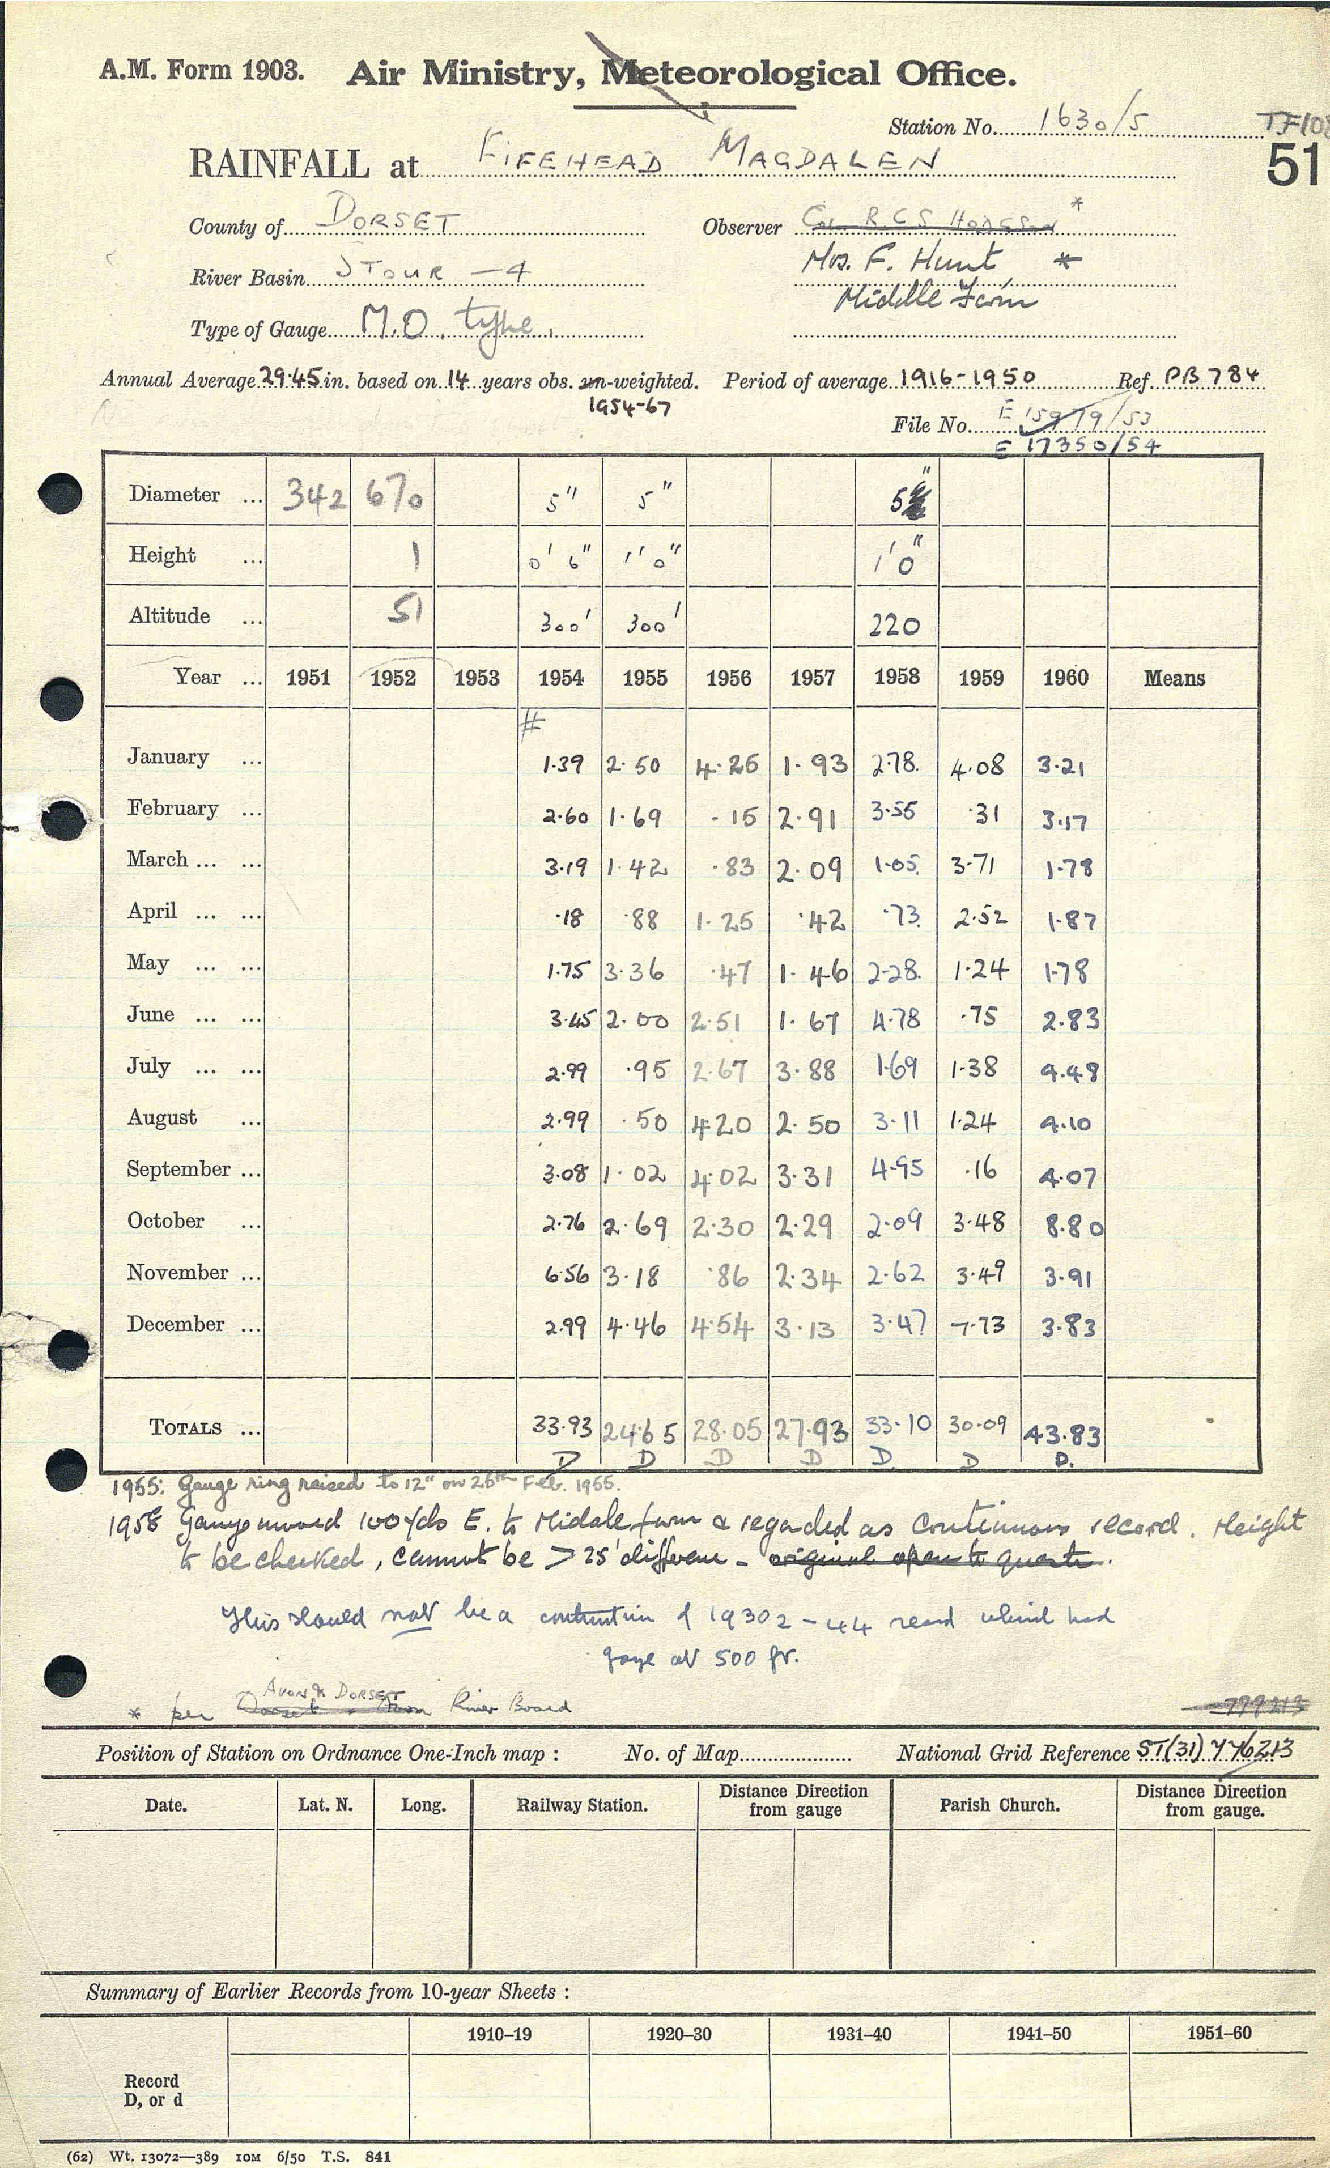 A.M. Form 1903. Air Ministry, Meteorological Office.
Station No. 1630/5 TF108
RAINFALL at FIFEHEAD MAGDALEN 51
County of DORSET Observer Col R.C.S Hodgson *
River Basin STOUR - 4 Mrs. F. Hunt *
Middle Farm
Type of Gauge M.O. type
Annual Average 29.45 in. based on 14 years obs. un-weighted. Period of average 1916-1950 Ref. PB 784
1954-67
File No. E 15979/53
E 17350/54
Diameter ... 342 670 5" 5" 5"
Height ... 1 0' 6" 1' 0" 1' 0"
Altitude ... 51 300' 300' 220
Year ... 1951 1952 1953 1954 1955 1956 1957 1958 1959 1960 Means
#
January ... 1.39 2.50 4.26 1.93 2.78 4.08 3.21
February ... 2.60 1.69 .15 2.91 3.55 .31 3.17
March ... ... 3.19 1.42 .83 2.09 1.05 3.71 1.78
April ... ... .18 .88 1.25 .42 .73 2.52 1.87
May ... ... 1.75 3.36 .47 1.46 2.28 1.24 1.78
June ... ... 3.45 2.00 2.51 1.67 4.78 .75 2.83
July ... ... 2.99 .95 2.67 3.88 1.69 1.38 4.48
August ... 2.99 .50 4.20 2.50 3.11 1.24 4.10
September ... 3.08 1.02 4.02 3.31 4.95 .16 4.07
October ... 2.76 2.69 2.30 2.29 2.09 3.48 8.80
November ... 6.56 3.18 .86 2.34 2.62 3.49 3.91
December ... 2.99 4.46 4.54 3.13 3.47 7.73 3.83
TOTALS ... 33.93 24.65 28.05 27.93 33.10 30.09 43.83
D D D D D D D.
1955: Gauge ring raised to 12" on 25th Feb. 1955.
1958 Gauge moved 100 yds E. to Middle farm & regarded as continuous record. Height
to be checked, cannot be > 25' difference - original open to
This should not be a continuation of 1930 2-44 record which had
gauge at 500 ft.
AVON & DORSET
* per Dorset Avon River Board 799213
Position of Station on Ordnance One-Inch map : No. of Map National Grid Reference ST(31) 776213
Date. Lat. N. Long. Railway Station. Distance from gauge Direction Parish Church. Distance from gauge. Direction
Summary of Earlier Records from 10-year Sheets :
1910–19 1920–30 1931–40 1941–50 1951–60
Record
D, or d
(62) Wt. 13072—389 10M 6/50 T.S. 841